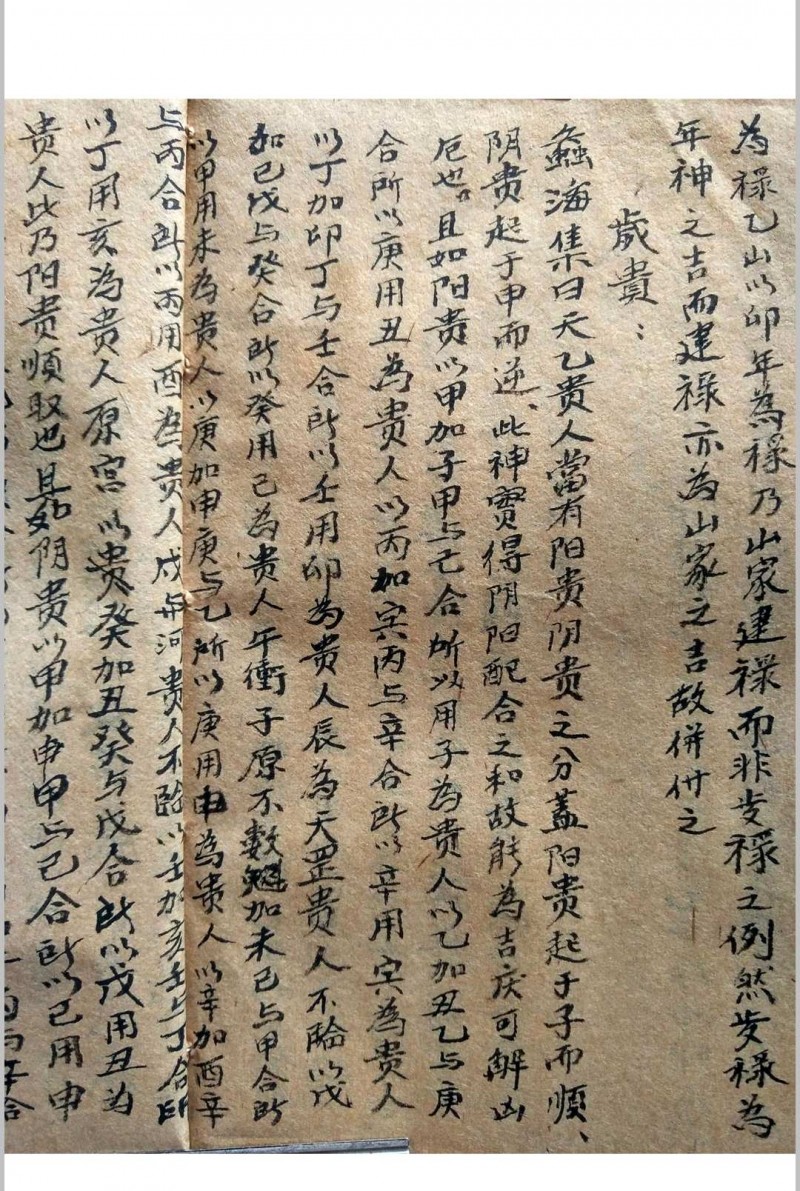 為禄乙山以卯年為禄乃山家建禄而非歩禄之例然歩禄為
年神之吉而建禄亦為山家之吉故併付之
歳貴：
蠡海集曰天乙贵人當有阳贵阴贵之分蓋阳贵起于子而順、
阴贵起于申而逆、此神實得阴阳配合之和故能為吉庆可解凶
厄也。且如阳贵以甲加子甲与己合所以用子為贵人以乙加丑乙与庚
合所以庚用丑為贵人以丙加寅丙与辛合所以辛用寅為贵人
以丁加卯丁与壬合所以壬用卯為贵人辰為天罡贵人不臨以戊
加已戊与癸合所以癸用己為贵人午衝子原不数 加未己与甲合所
以甲用未為贵人以庚加申庚与乙所以庚用申為贵人以辛加酉辛
与丙合所以丙用酉為贵人戍 河贵人不臨以壬加亥壬与丁合所
以丁用亥為贵人原宫以贵癸加丑癸与戊合所以戊用丑為
贵人此乃阳贵順取也且如阴贵以甲加申甲与己合所以己用申